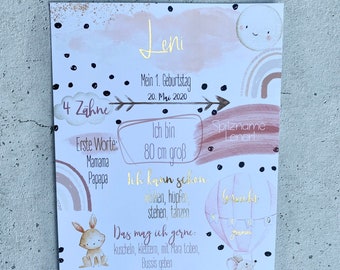 Leni
Mein 1. Geburtstag
20. Mai 2020
4 Zähne
Ich bin
80 cm groß
Spitzname
Erste Worte:
Mama
Papapa
Ich kann schon
hüpfen,
stehen, tanzen
Das mag ich gerne:
kuscheln, klettern, mit Mara toben,
Bussis geben